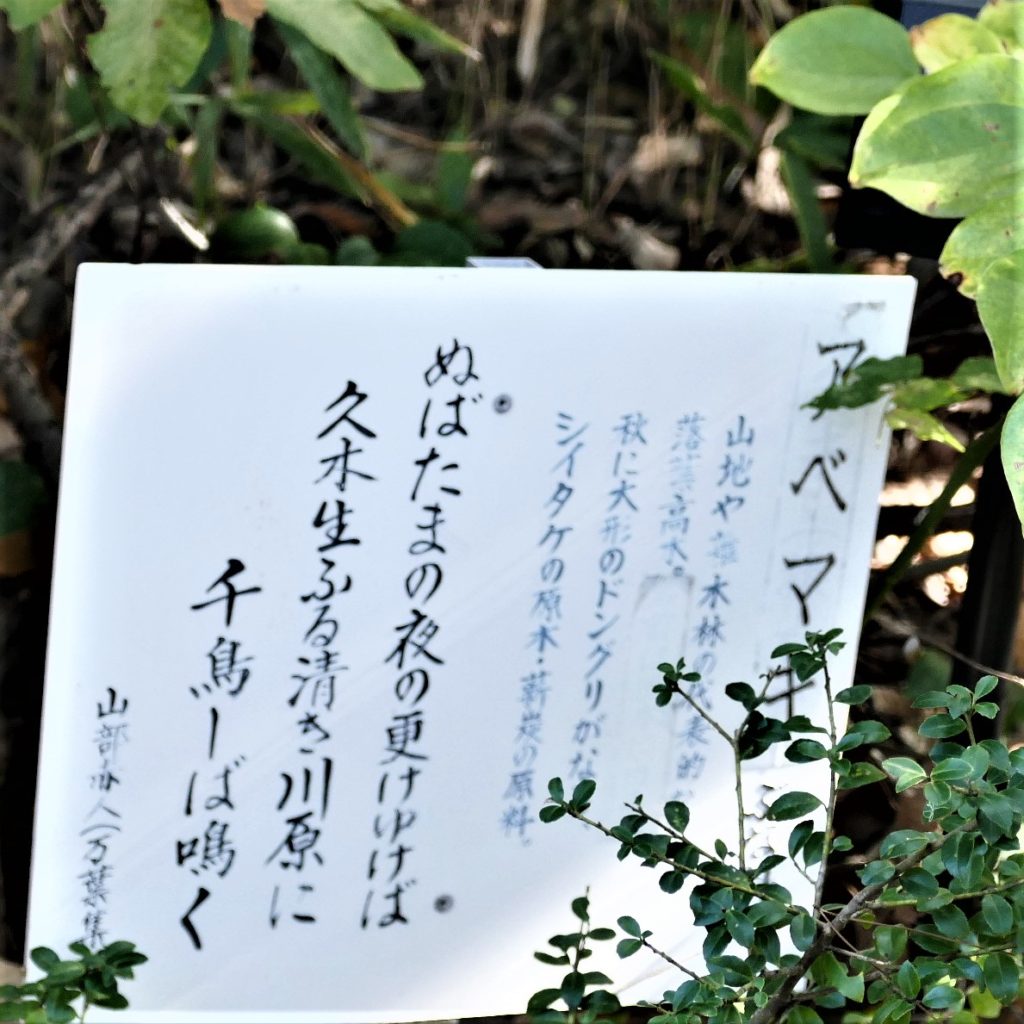 アベマキ
山地や雑木林の代表的
落葉高木。
秋に大形のドングリがな
シイタケの原木・薪炭の原料。
ぬばたまの夜の更けゆけば
久木生ふる清き川原に
千鳥しば鳴く
山部赤人(万葉集